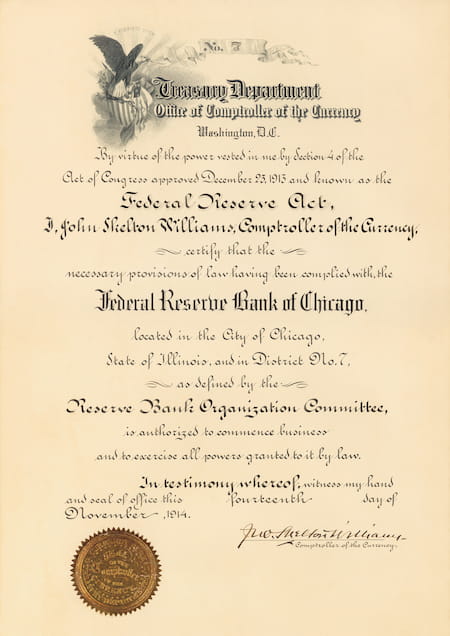 No. 7
Treasury Department
Office of Comptroller of the Currency
Washington, D.C.
By virtue of the power vested in me by Section 4 of the
Act of Congress approved December 23, 1913 and known as the
Federal Reserve Act,
I, John Skelton Williams, Comptroller of the Currency,
certify that the
necessary provisions of law having been complied with, the
Federal Reserve Bank of Chicago,
located in the City of Chicago,
State of Illinois, and in District No. 7,
as defined by the
Reserve Bank Organization Committee,
is authorized to commence business
and to exercise all powers granted to it by law.
In testimony whereof, witness my hand
and seal of office this fourteenth day of
November, 1914.
Jno. Skelton Williams
Comptroller of the Currency.